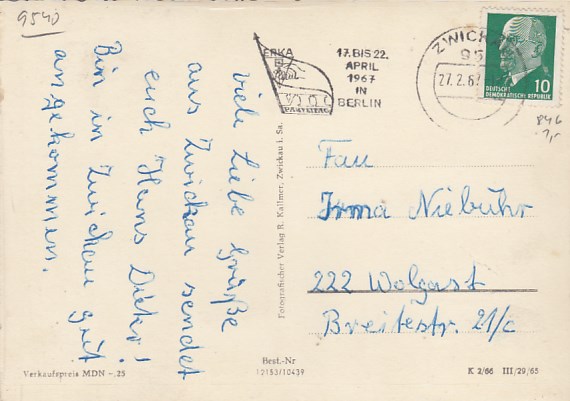 9540
viele Liebe Grüße
aus Zwickau sendet
euch Hans Dieter!
Bin in Zwickau gut
angekommen.
17. BIS 22.
APRIL
1967
IN
BERLIN
PARTEITAG
ZWICKAU
95
27.2.67
10
DEUTSCHE
DEMOKRATISCHE REPUBLIK
846
Frau
Irma Niebuhr
222 Wolgast
Breitestr. 21/c
Fotografischer Verlag R. Kallmer, Zwickau i. Sa.
Verkaufspreis MDN -,25
Best.-Nr
12153/10439
K 2/66 III/29/65